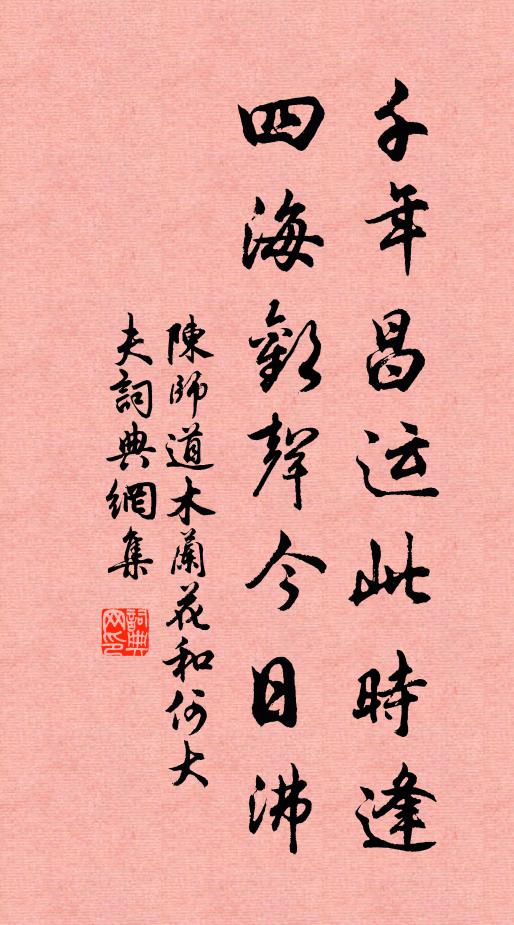 千年昌运此時逢
四海歡聲今日沸
陳師道木蘭花和何大
夫詞典網集
詞典網印